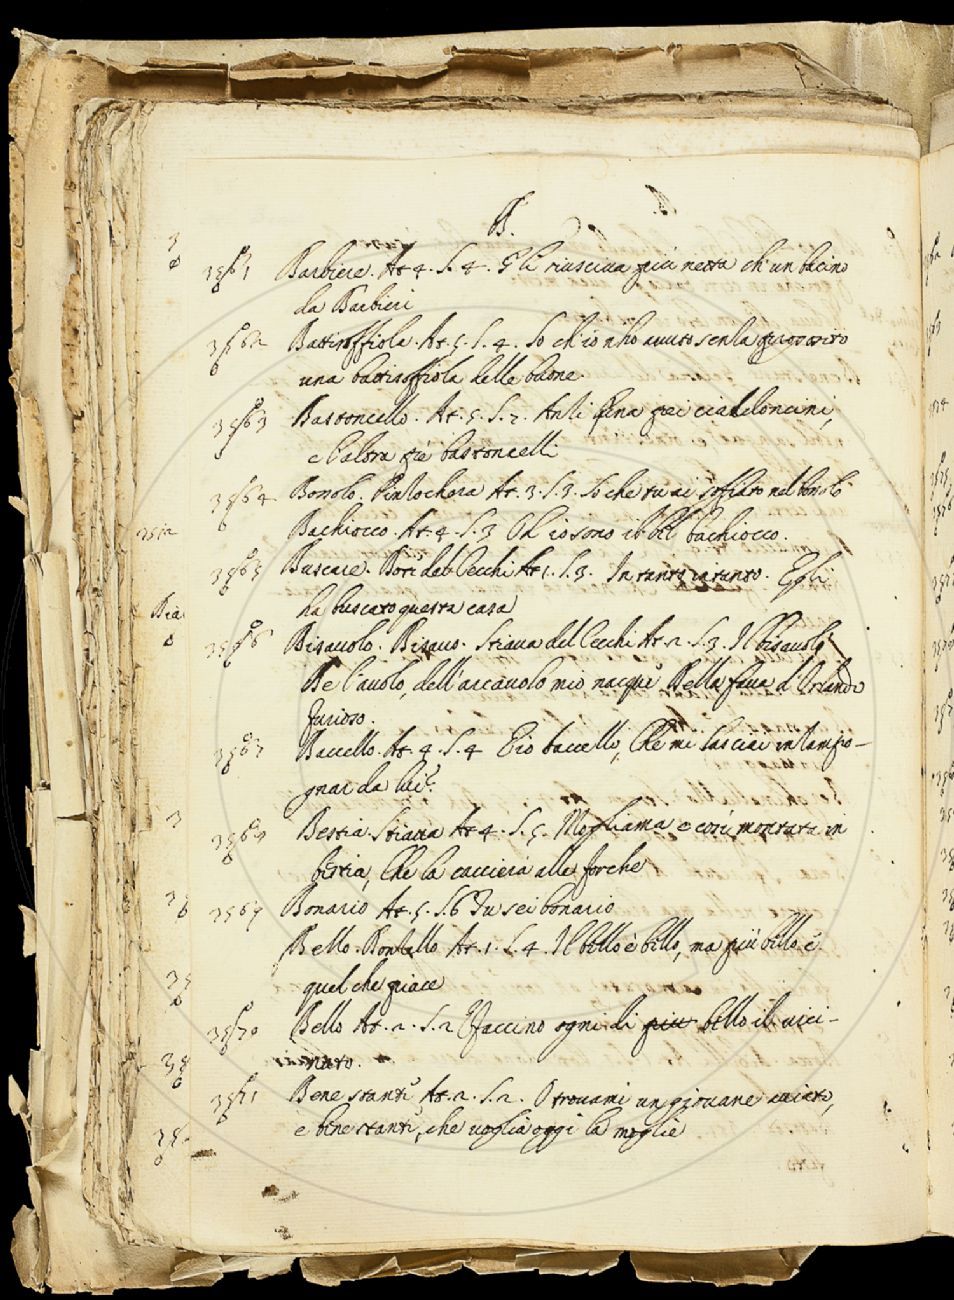 B.
3561 Barbiere. At. 4. S. 4. Gli riusciua piu netta ch'un bacino
da Barbieri
3562 Batisoffiola. At. 5. S. 4. So ch'io n'ho auuto
una batisoffiola delle buone.
3563 Bastoncello. At. 5. S. 2. Anzi fina poi cialdoncini,
e talora più bastoncelli
3564 Bossolo. Pinzochera At. 3. S. 3. So che tu ai soffiato nel bossolo
Bachiocco. At. 4. S. 3 Oh io sono il bel bachiocco.
3565 Buscare. Doti del Cecchi At. 1. S. 3. In tanto in tanto. Egli
ha buscato questa casa
3566 Bisauolo. Bisauo. Stiaua del Cecchi At. 2. S. 3. Il bisauolo
De l'auolo, dell'arcauolo mio nacque Della faua d'Orlando
furioso.
3567 Baccello. At. 4. S. 4 Eio baccello, Che mi lasciai inzampo-
gnar da lui.
3568 Bestia. Stiaua At. 4. S. 5. Mogliama e cosi montata in
bestia, Che la cacciera alle forche
3569 Bonario At. 5. S. 6 Tu sei bonario
Bello. At. 1. S. 4. Il bello è bello, ma più bello è
quel che piace
3570 Bello At. 2. S. 2 Faccino ogni di piu bello il vici-
nato.
3571 Bene stante At. 2. S. 2. O trouami un giouane
e bene stante, che uoglia oggi la moglie